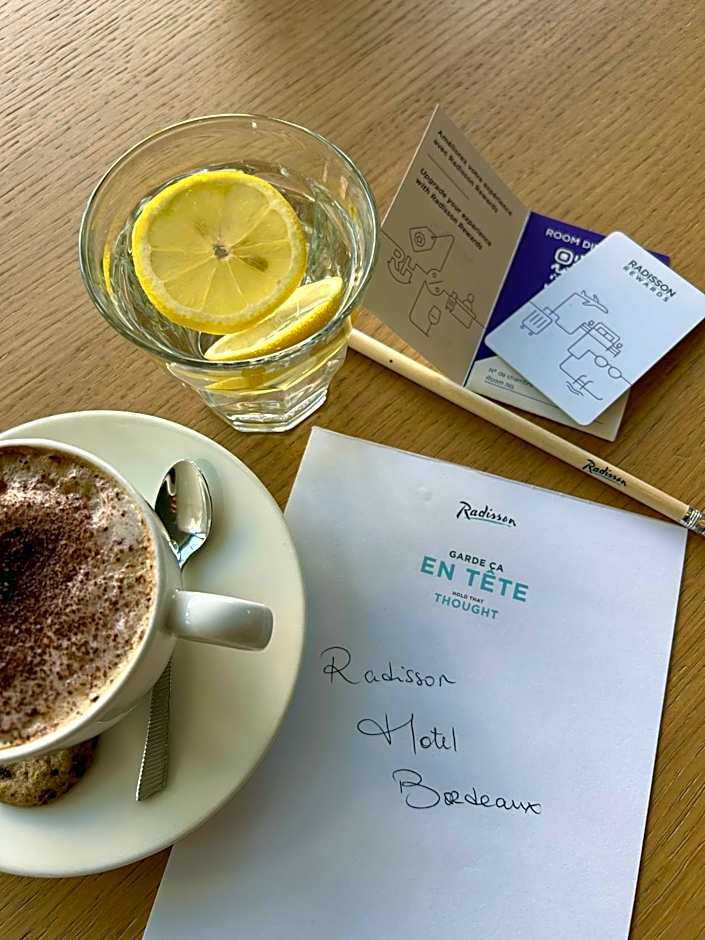 Améliorez votre expérience
avec Radisson Rewards
Upgrade your experience
with Radisson Rewards
ROOM
RADISSON
REWARDS
N° de
Room No.
Radisson
Radisson
GARDE ÇA
EN TÊTE
HOLD THAT
THOUGHT
Radisson
Hotel
Bordeaux